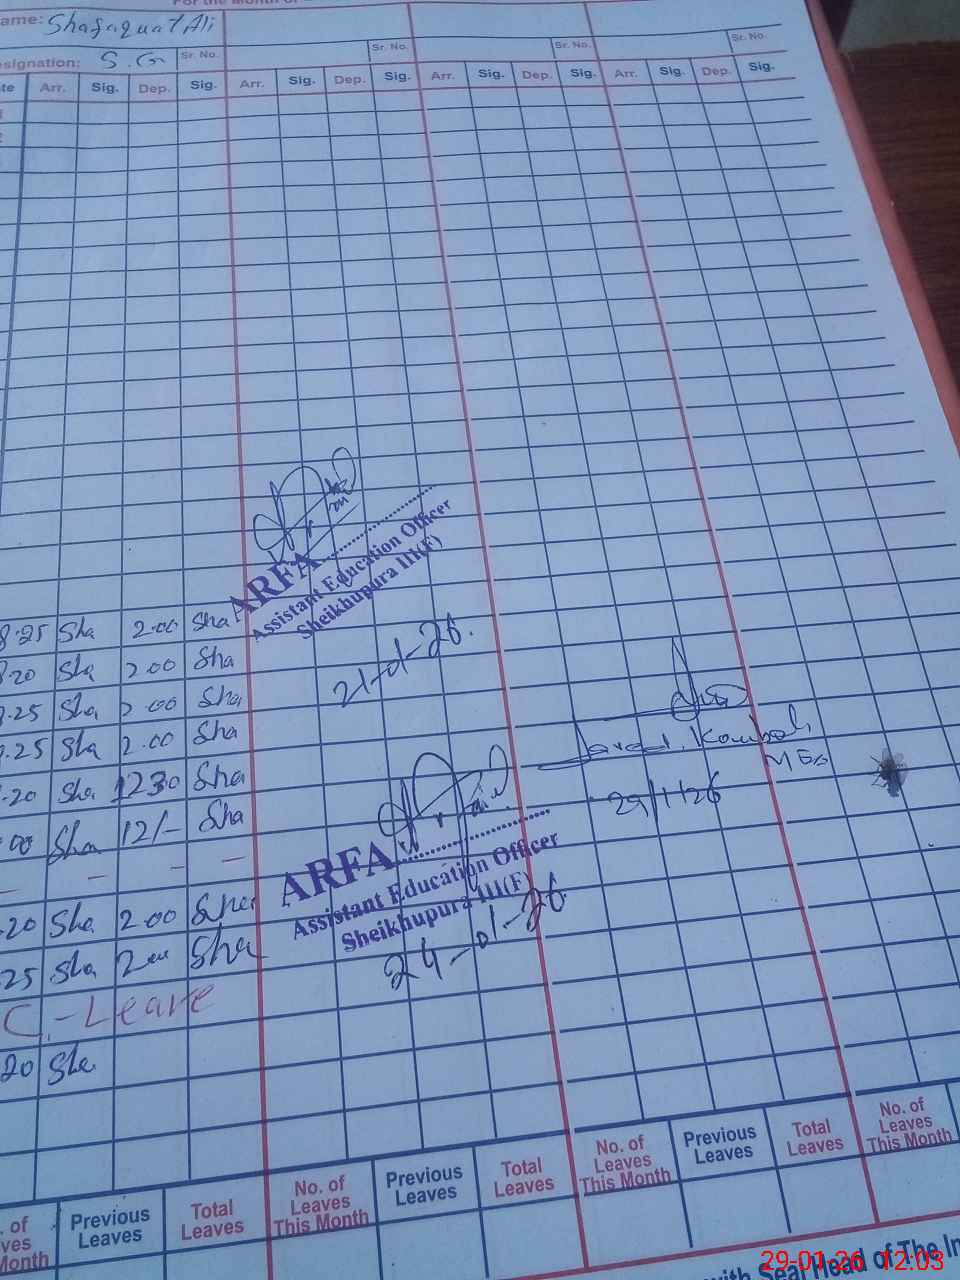 For the Month of
ame: Shafaquat Ali
esignation: S.G Sr. No. Sr. No. Sr. No. Sr. No.
te Arr. Sig. Dep. Sig. Arr. Sig. Dep. Sig. Arr. Sig. Dep. Sig. Arr. Sig. Dep. Sig.
ARFA
Assistant Education Officer
Sheikhupura III(F)
21-01-26.
8.25 Sha 2.00 Sha
.20 Sha 2 00 Sha
.25 Sha 2 00 Sha
.25 Sha 2.00 Sha
.20 Sha 1230 Sha
.00 Sha 12/- Sha
– – – –
.20 Sha 2 00 Sha
25 Sha 2 Sha
C.-Leave
20 Sha
MEA
29/1/26
ARFA
Assistant Education Officer
Sheikhupura III(F)
24-01-26.
. of
ves
Month Previous
Leaves Total
Leaves No. of
Leaves
This Month Previous
Leaves Total
Leaves No. of
Leaves
This Month Previous
Leaves Total
Leaves No. of
Leaves
This Month
with Seal Head of The In
29-01-26 12:03